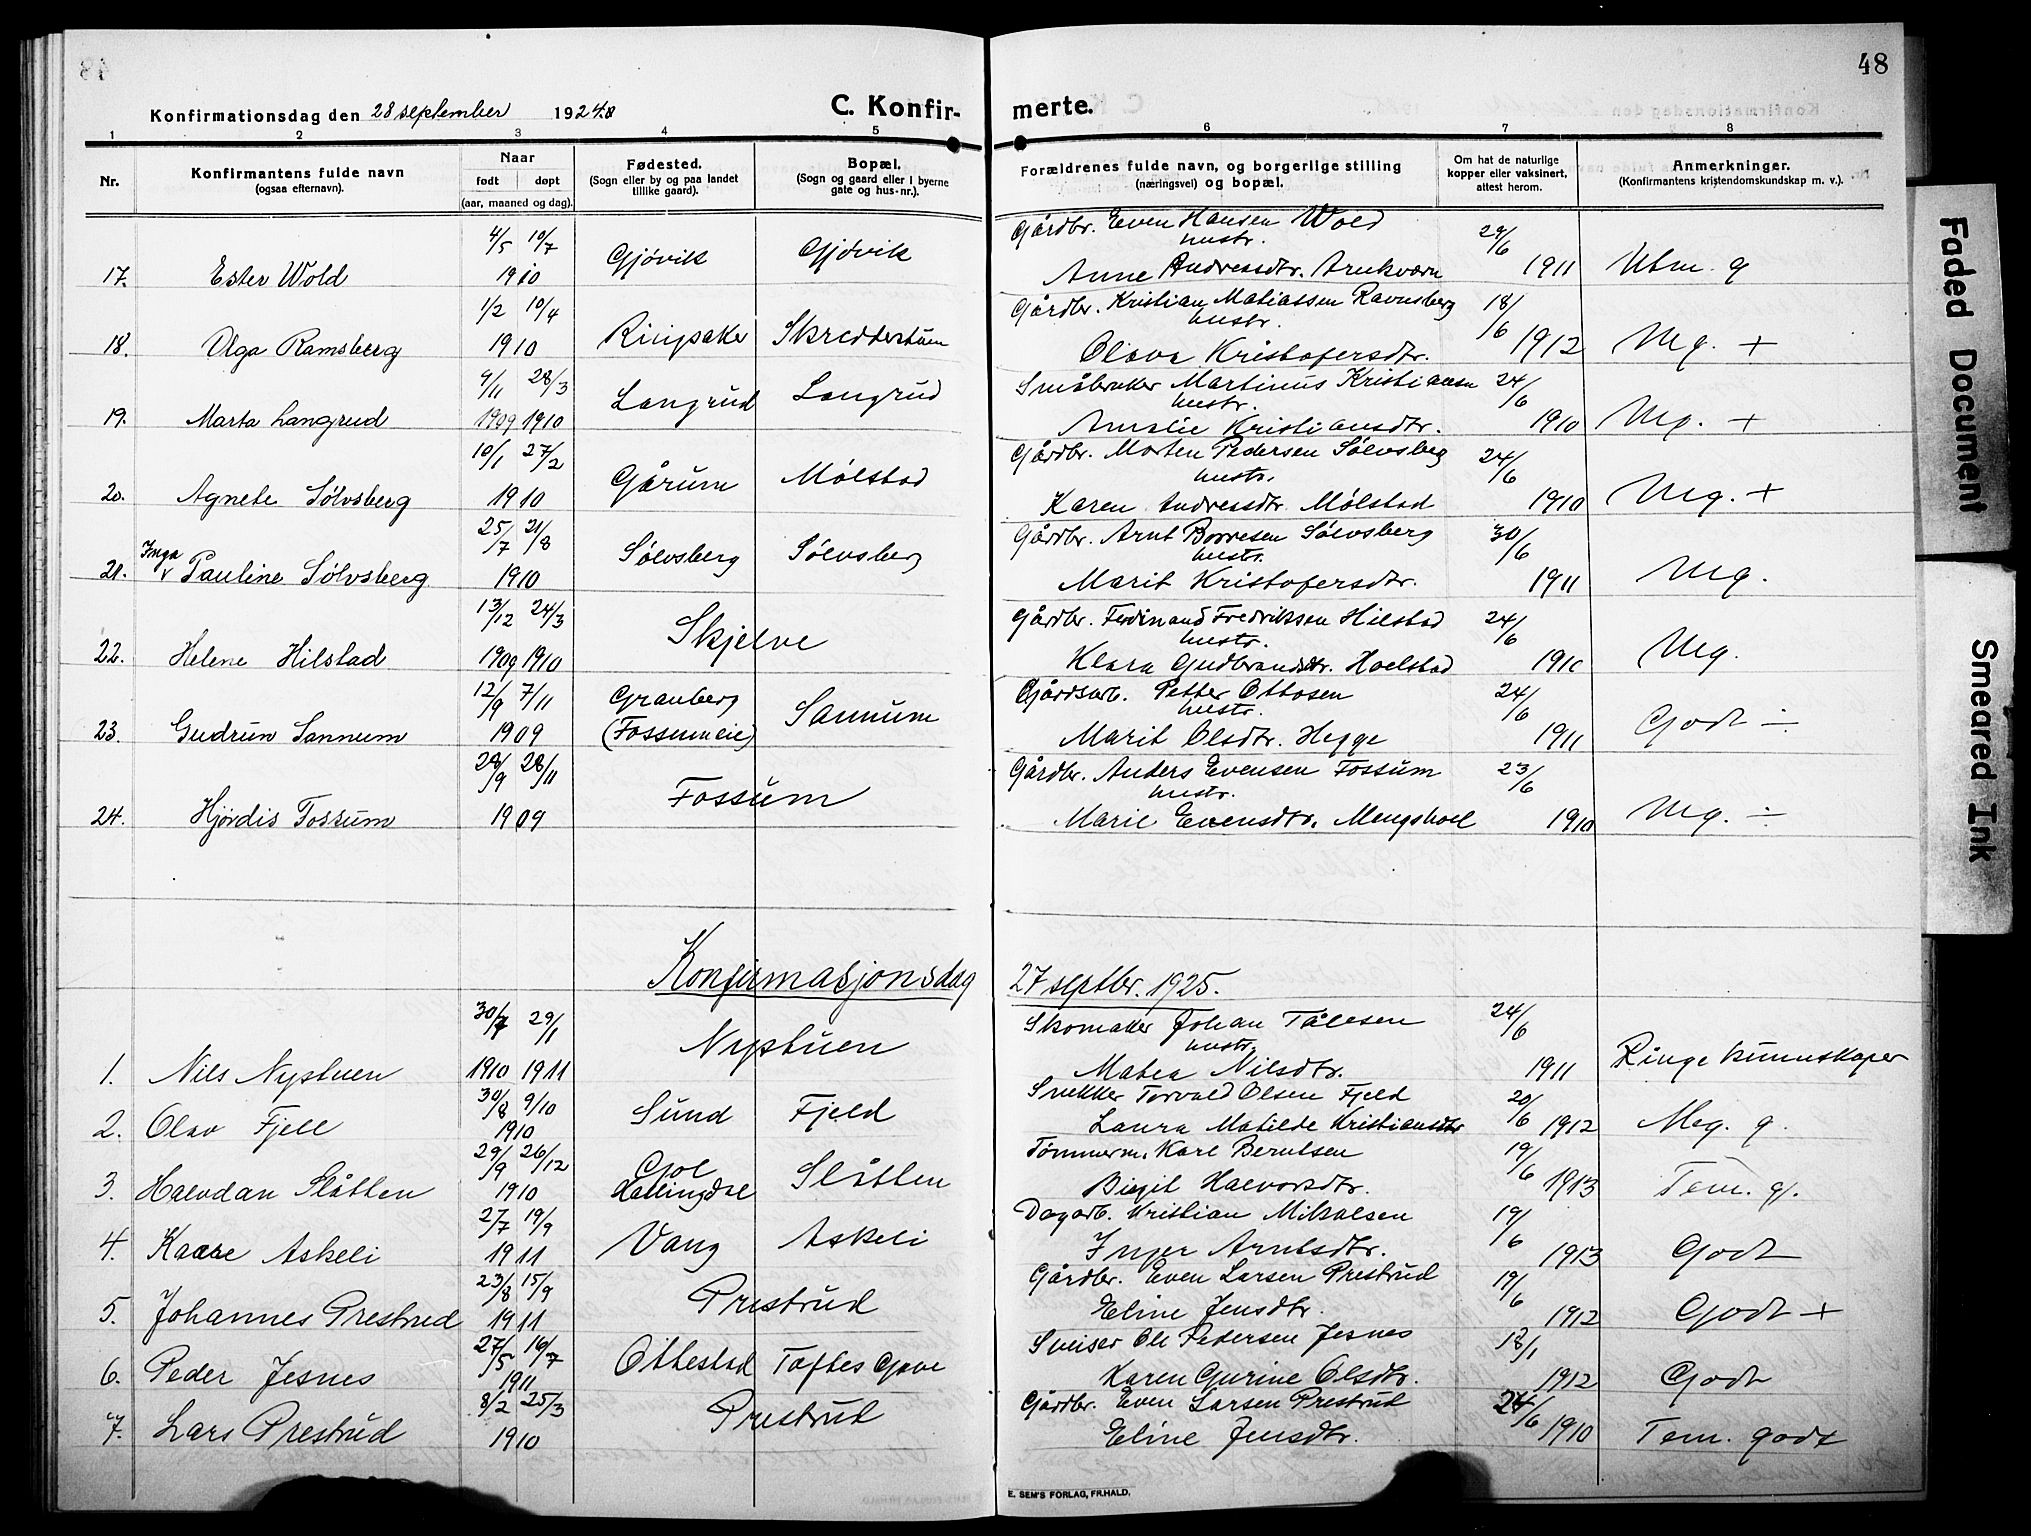 48
Konfirmationsdag den 28 september 1924.
C. Konfir-
merte.
1 2 3 4 5 6 7 8
Nr.
Konfirmantens fulde navn
(ogsaa efternavn).
Naar
født døpt
(aar, maaned og dag).
Fødested.
(Sogn eller by og paa landet
tillike gaard).
Bopæl.
(Sogn og gaard eller i byerne
gate og hus-nr.).
Forældrenes fulde navn, og borgerlige stilling
(næringsvei) og bopæl.
Om hat de naturlige
kopper eller vaksinert,
attest herom.
Anmerkninger.
(Konfirmantens kristendomskundskap m. v.).
4/5 10/7 Gårdbr. Even Hansen Wold 29/6
hustr.
17. Ester Wold 1910 Gjøvik Gjøvik Anne Andreasdtr. Arnkværn 1911 Utm. g
1/2 10/4 Gårdbr. Kristian Matiassen Ravnsberg 18/6
hustr.
18. Olga Ramsberg 1910 Ringsaker Skredderstuen Olava Kristofersdtr. 1912 Mg. +
9/11 28/3 Småbruker Martinus Kristiansen 24/6
hustr.
19. Marta Langrud 1909 1910 Langrud Langrud Amalie Kristiansdtr. 1910 Mg. +
10/1 27/2 Gårdbr. Morten Pedersen Sølvsberg 24/6
hustr.
20. Agnete Sølvsberg 1910 Gårum Mølstad Karen Andreasdtr Mølstad 1910 Mg. +
25/7 21/8 Gårdbr. Arnt Borresen Sølvsberg 30/6
Inga hustr.
21. v Pauline Sølvsberg 1910 Sølvsberg Sølvsberg Marit Kristofersdtr. 1911 Mg.
13/12 24/3 Gårdbr. Ferdinand Fredriksen Hilstad 24/6
hustr.
22. Helene Hilstad 1909 1910 Skjelve Klara Gudbrandsdtr. Hoelstad 1910 Mg.
12/9 7/11 Granberg Gårdsarb. Petter Ottosen 24/6
hustr.
23. Gudrun Sannum 1909 (Fossumeie) Sannum Marit Olsdtr. Hegge 1911 Godt ÷
28/9 28/11 Gårdbr. Anders Evensen Fossum 23/6
hustr.
24. Hjørdis Fossum 1909 Fossum Marie Evensdtr. Mengshoel 1910 Mg. ÷
Konfirmasjonsdag 27 septbr. 1925.
30/7 29/1 Skomaker Johan Tålesen 24/6
hustr.
1. Nils Nystuen 1910 1911 Nystuen Matea Nilsdtr. 1911 Ringe kunnskaper
30/8 9/10 Snekker Torvald Olsen Fjeld 20/6
2. Olav Fjell 1910 Sund Fjeld Laura Matilde Kristiansdtr 1912 Meg. g.
29/9 26/12 Gol Tømmerm. Karl Berntsen 19/6
3. Halvdan Slåtten 1910 Hallingdal Slåtten Birgit Halvorsdtr. 1913 Tem. g.
27/7 19/9 Dagarb. Kristian Mikalsen 19/6
4. Kaare Askeli 1911 Vang Askeli Inger Arntsdtr. 1913 Godt
23/8 15/9 Gårdbr. Even Larsen Prestrud 19/6
5. Johannes Prestrud 1911 Prestrud Eline Jensdtr. 1912 Godt +
27/5 16/7 Sveiser Ole Pedersen Jesnes 18/1
6. Peder Jesnes 1911 Ottestad Toftes Gave Karen Gurine Olsdtr. 1912 Godt
8/2 25/3 Gårdbr. Even Larsen Prestrud 24/6
7. Lars Prestrud 1910 Prestrud Eline Jensdtr. 1910 Tem. godt
E. SEM'S FORLAG, FR.HALD.
Faded Document
Smeared Ink